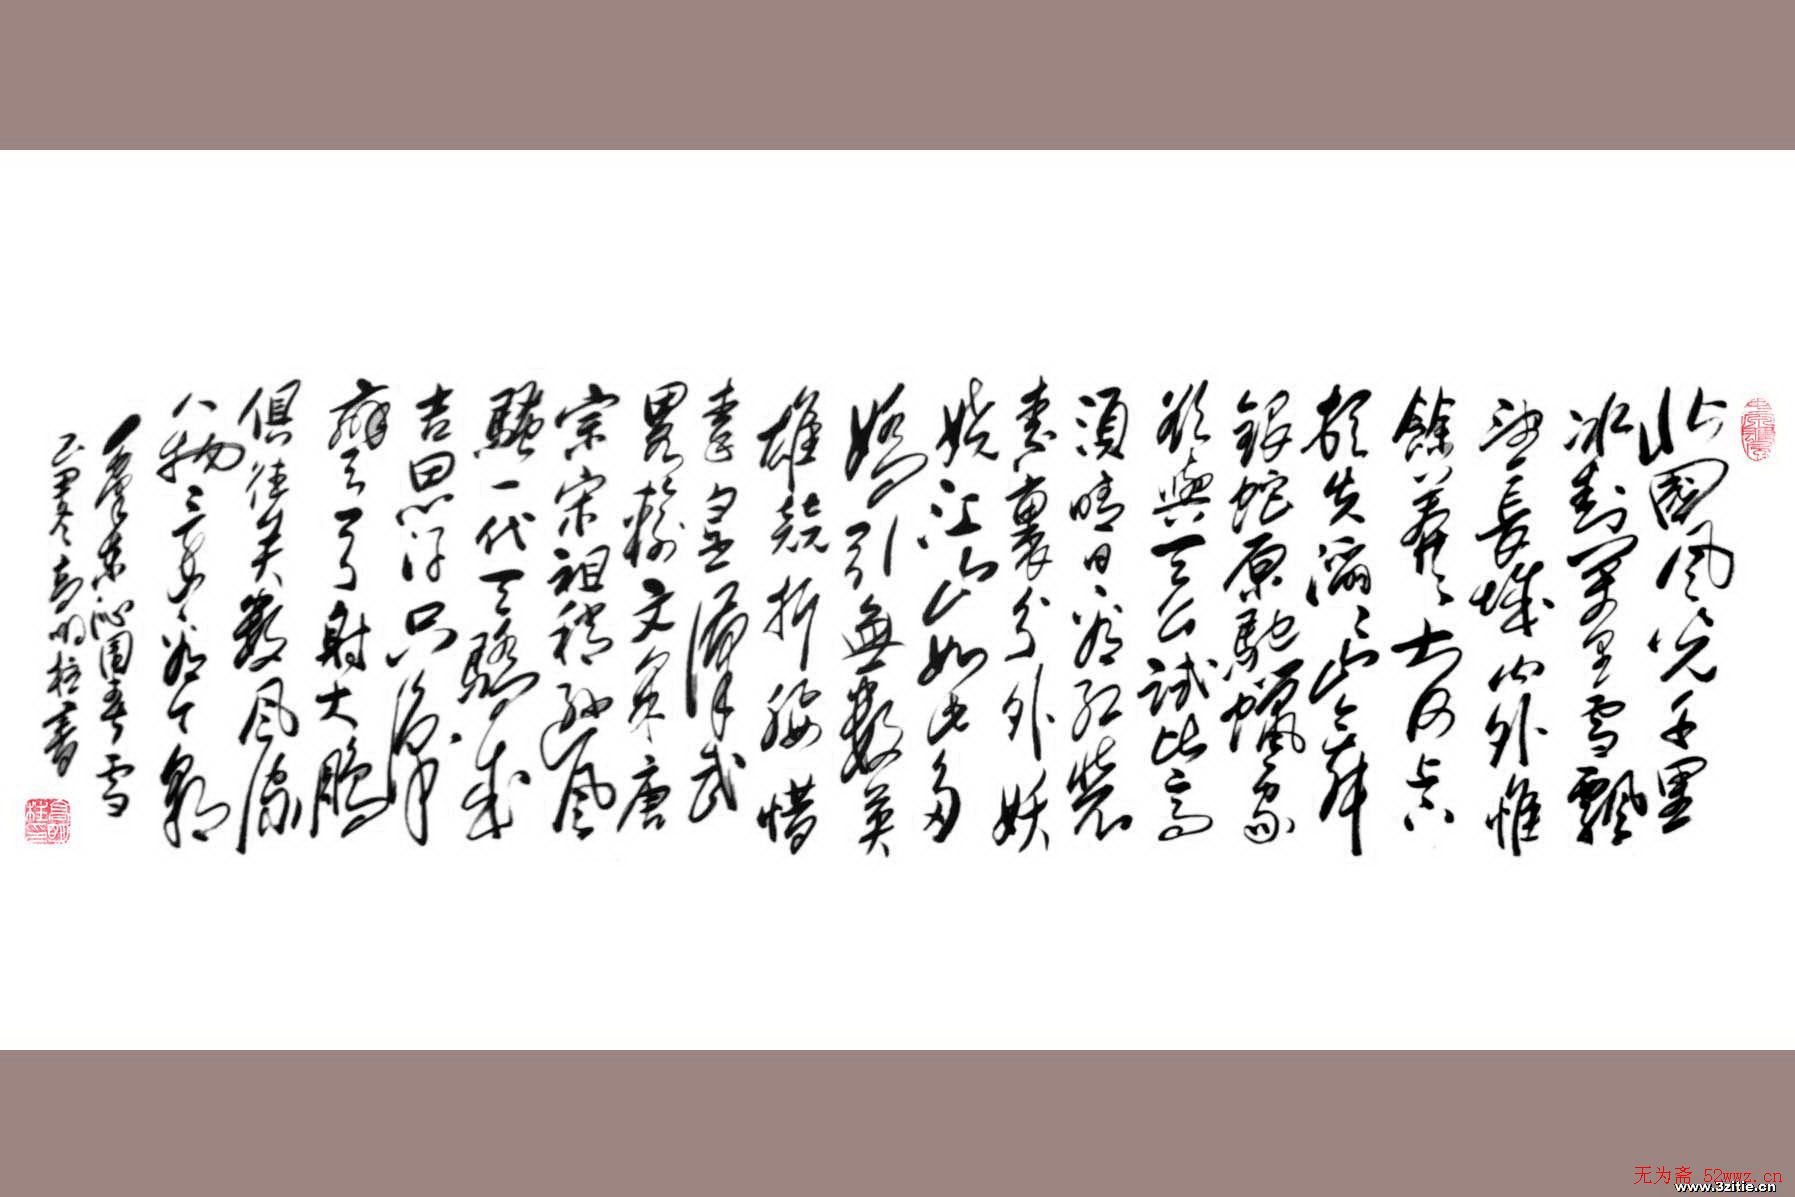 北國風光千里
冰封萬里雪飄
望長城内外惟
餘莽〻大河上下
頓失滔〻山舞
銀蛇原馳蠟象
欲與天公試比高
須晴日看紅裝
素裹分外妖
嬈江山如此多
嬌引無數英
雄競折腰惜
秦皇漢武
略輸文采唐
宗宋祖稍遜風
騷一代天驕成
吉思汗只識
彎弓射大鵰
俱往矣數風流
人物還看今朝
毛澤東沁園春雪
冬高明柱書
无为斋 52wwz.cn
www.3zitie.cn